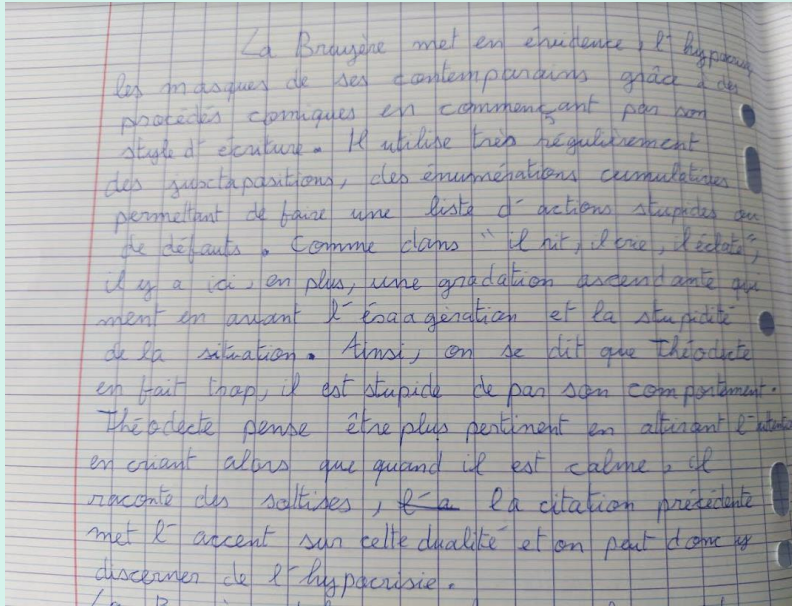 La Bruyère met en évidence, l'hypocrisie
les masques de ses contemparains grâce à des
procédés comiques en commençant par son
style d'écriture. Il utilise très régulièrement
des juxtapositions, des énumérations cumulatives
permettant de faire une liste d'actions stupides ou
de défauts. Comme dans "il rit, il crie, il éclate",
il y a ici, en plus, une gradation ascendante qui
ment en avant l'éxagération et la stupidité
de la situation. Ainsi, on se dit que Théodecte
en fait trop, il est stupide de par son comportement.
Théodecte pense être plus pertinent en attirant l'attention
en criant alors que quand il est calme, il
raconte des sottises, la citation précédente
met l'accent sur cette dualité et on peut donc y
discerner de l'hypocrisie.